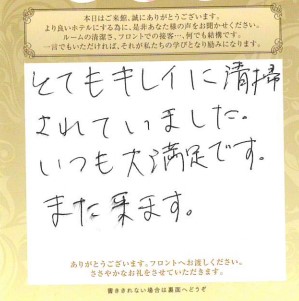 本日はご来館、誠にありがとうございます。
より良いホテルにする為に、是非あなた様の声をお聞かせください。
ルームの清潔さ、フロントでの接客…、何でも結構です。
一言でもいただければ、それが私たちの学びとなり励みになります。
とてもキレイに清掃
されていました。
いつも大満足です。
また来ます。
ありがとうございます。フロントへお渡しください。
ささやかなお礼をさせていただきます。
書ききれない場合は裏面へどうぞ